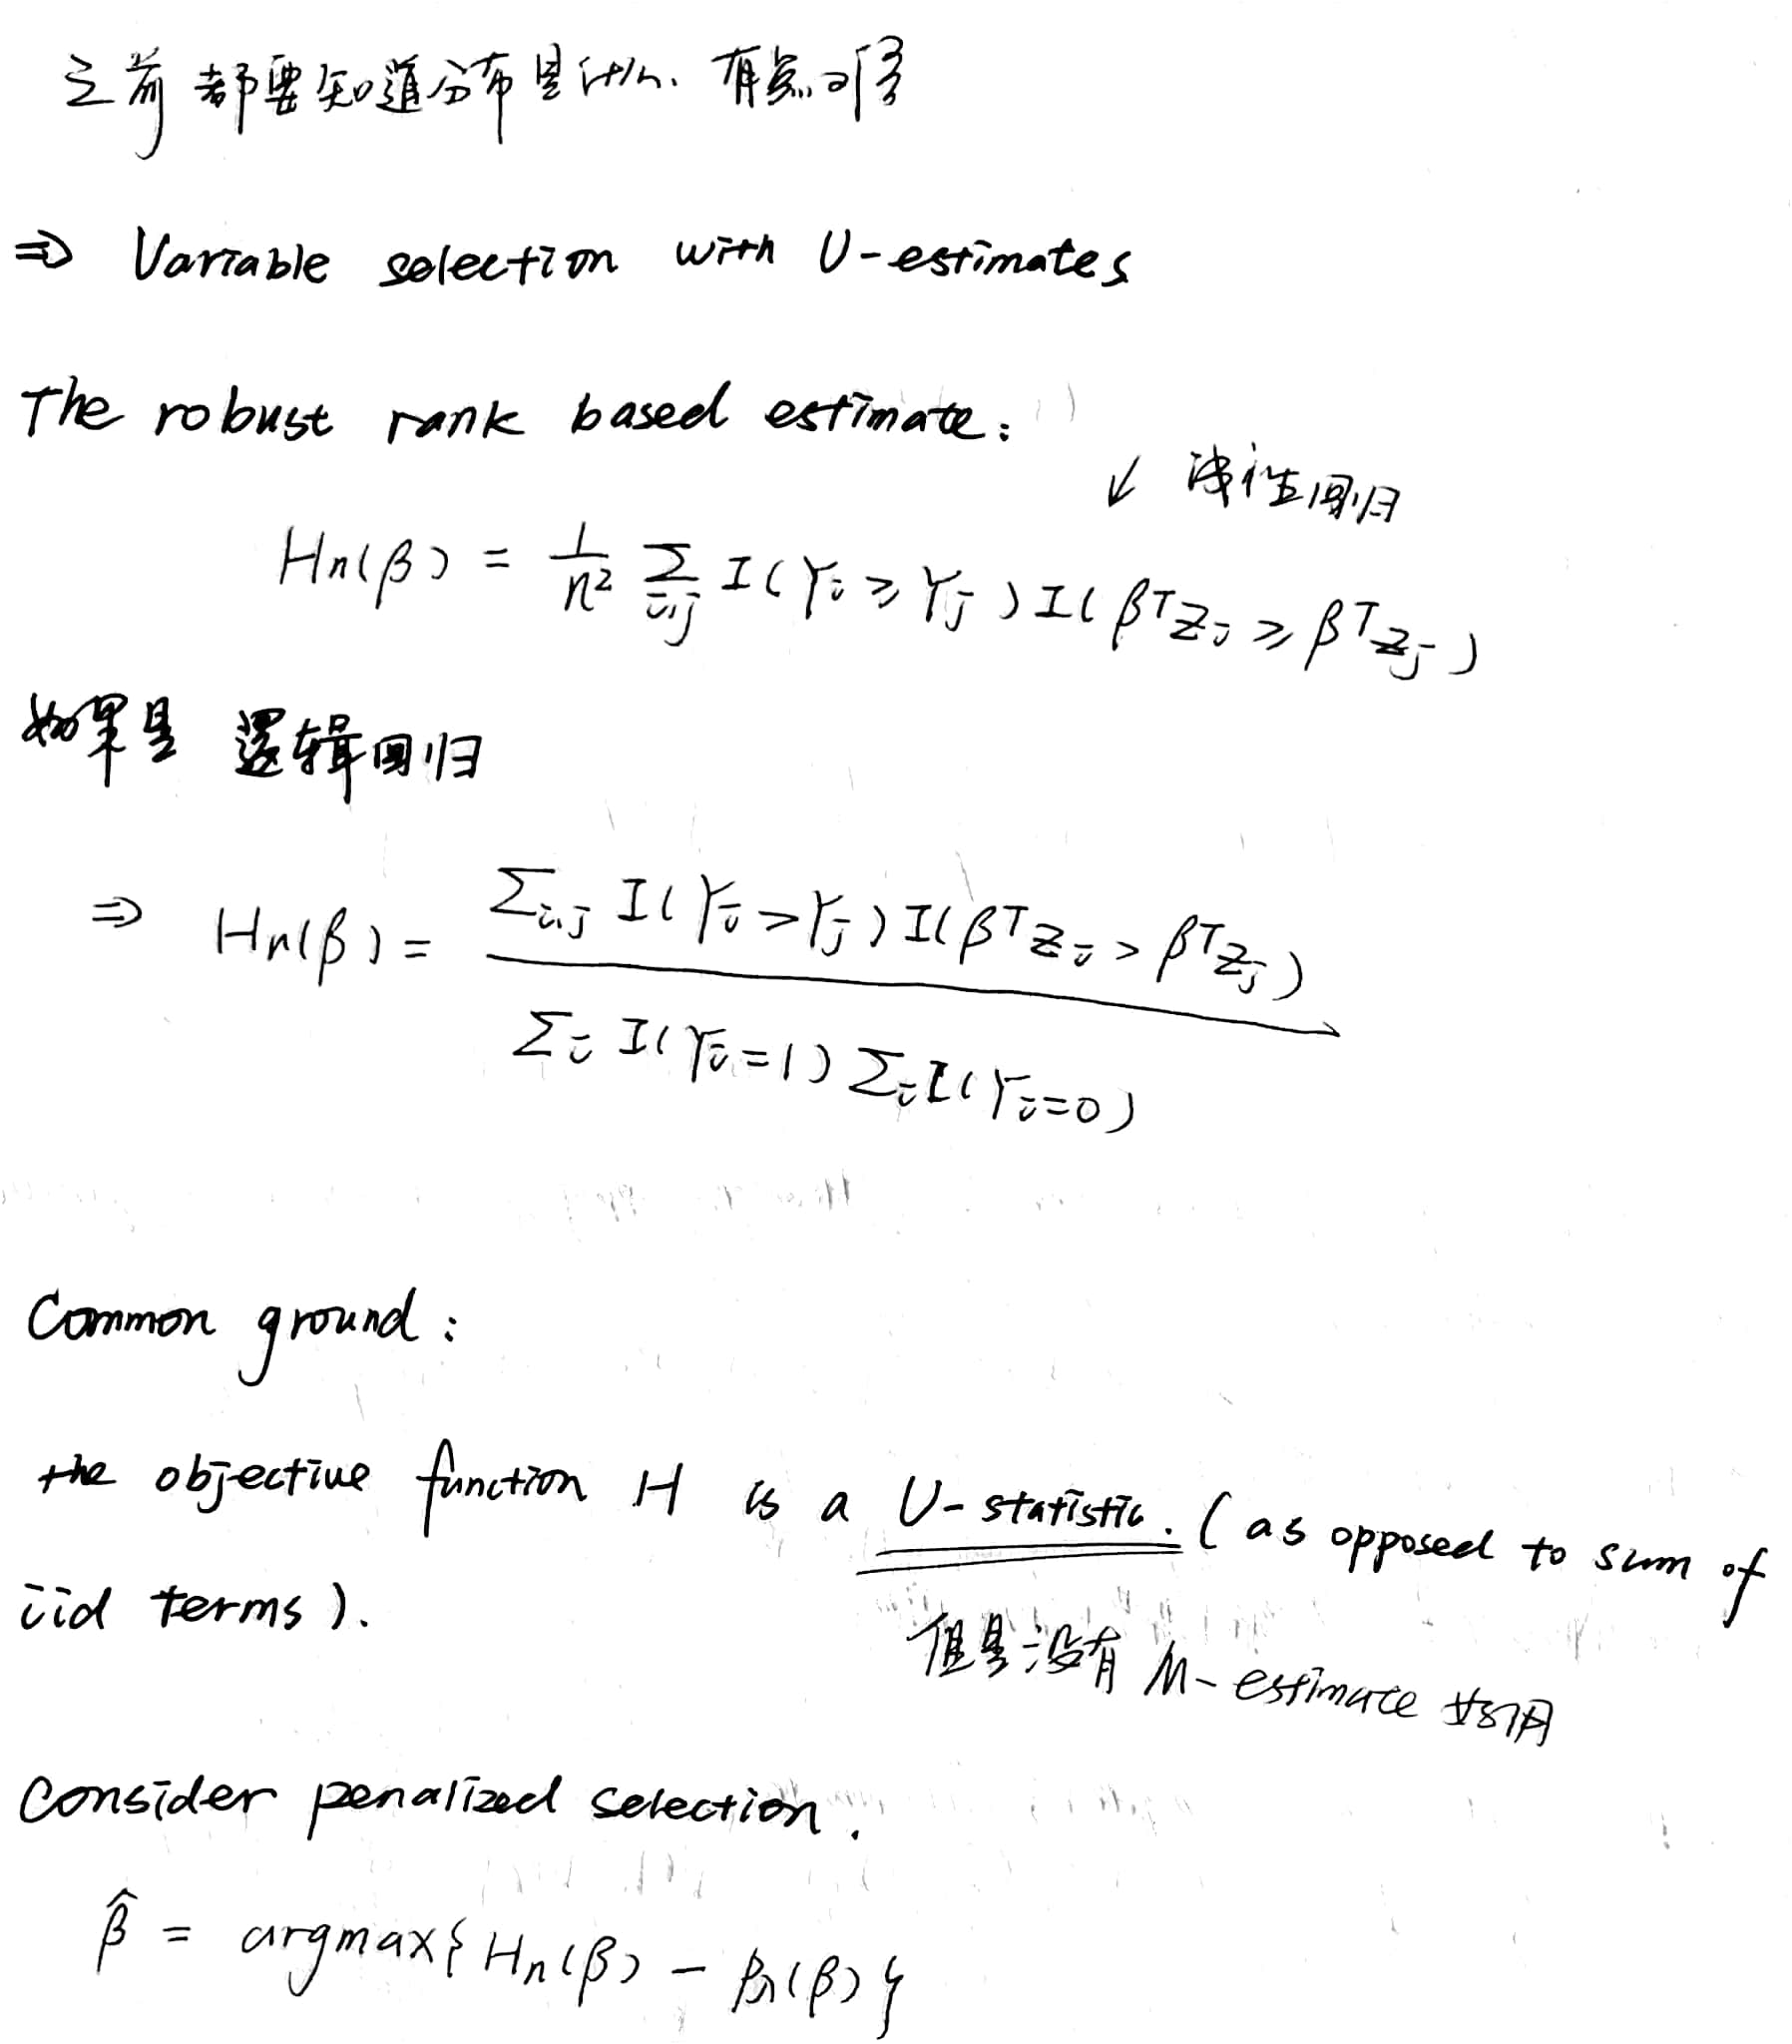 之前都要知道分布是什么、有点可惜
⇒ Variable selection with U-estimates
The robust rank based estimate:
↙ 线性回归
Hn(β) = 1/n² Σ_{i,j} I(Yi ≥ Yj) I(βᵀZi ≥ βᵀZj)
如果是 逻辑回归
⇒ Hn(β) = Σ_{i,j} I(Yi > Yj) I(βᵀZi > βᵀZj) / Σi I(Yi = 1) Σi I(Yi = 0)
Common ground:
the objective function H is a U-statistic. (as opposed to sum of
iid terms).
但是没有 M-estimate 好用
Consider penalized selection.
β̂ = argmax{Hn(β) - pλ(β)}